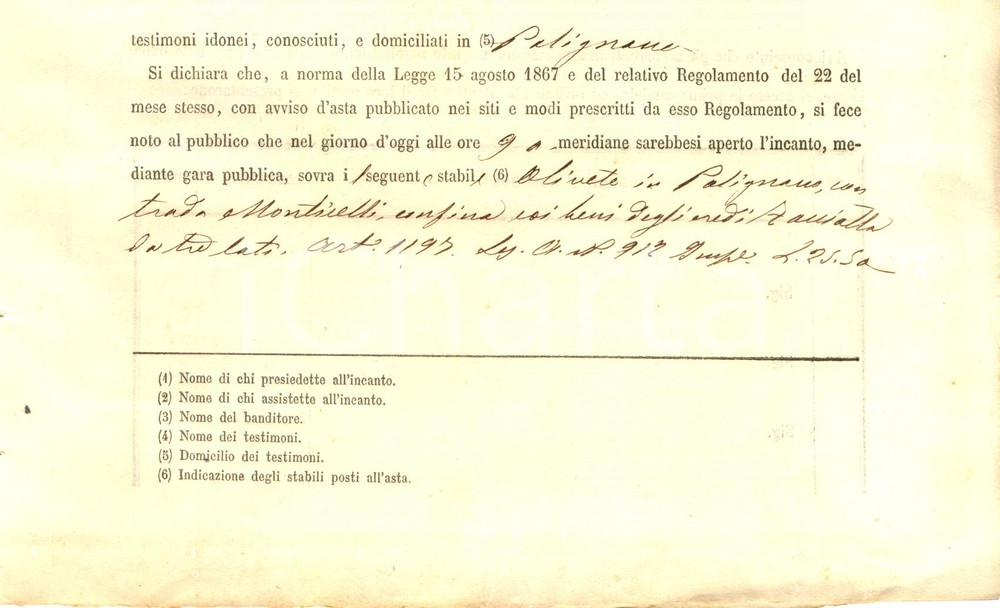 testimoni idonei, conosciuti, e domiciliati in (5) Polignano
Si dichiara che, a norma della Legge 15 agosto 1867 e del relativo Regolamento del 22 del
mese stesso, con avviso d'asta pubblicato nei siti e modi prescritti da esso Regolamento, si fece
noto al pubblico che nel giorno d'oggi alle ore 9 a meridiane sarebbesi aperto l'incanto, me-
diante gara pubblica, sovra i l seguente stabile (6) Oliveto in Polignano, con
trada Monticelli, confina coi beni degli eredi
da tre lati. Art. 1197. N. 917 L. 25.50
iCharta
Sig.
Sig.
(1) Nome di chi presiedette all'incanto.
(2) Nome di chi assistette all'incanto.
(3) Nome del banditore.
(4) Nome dei testimoni.
(5) Domicilio dei testimoni.
(6) Indicazione degli stabili posti all'asta.